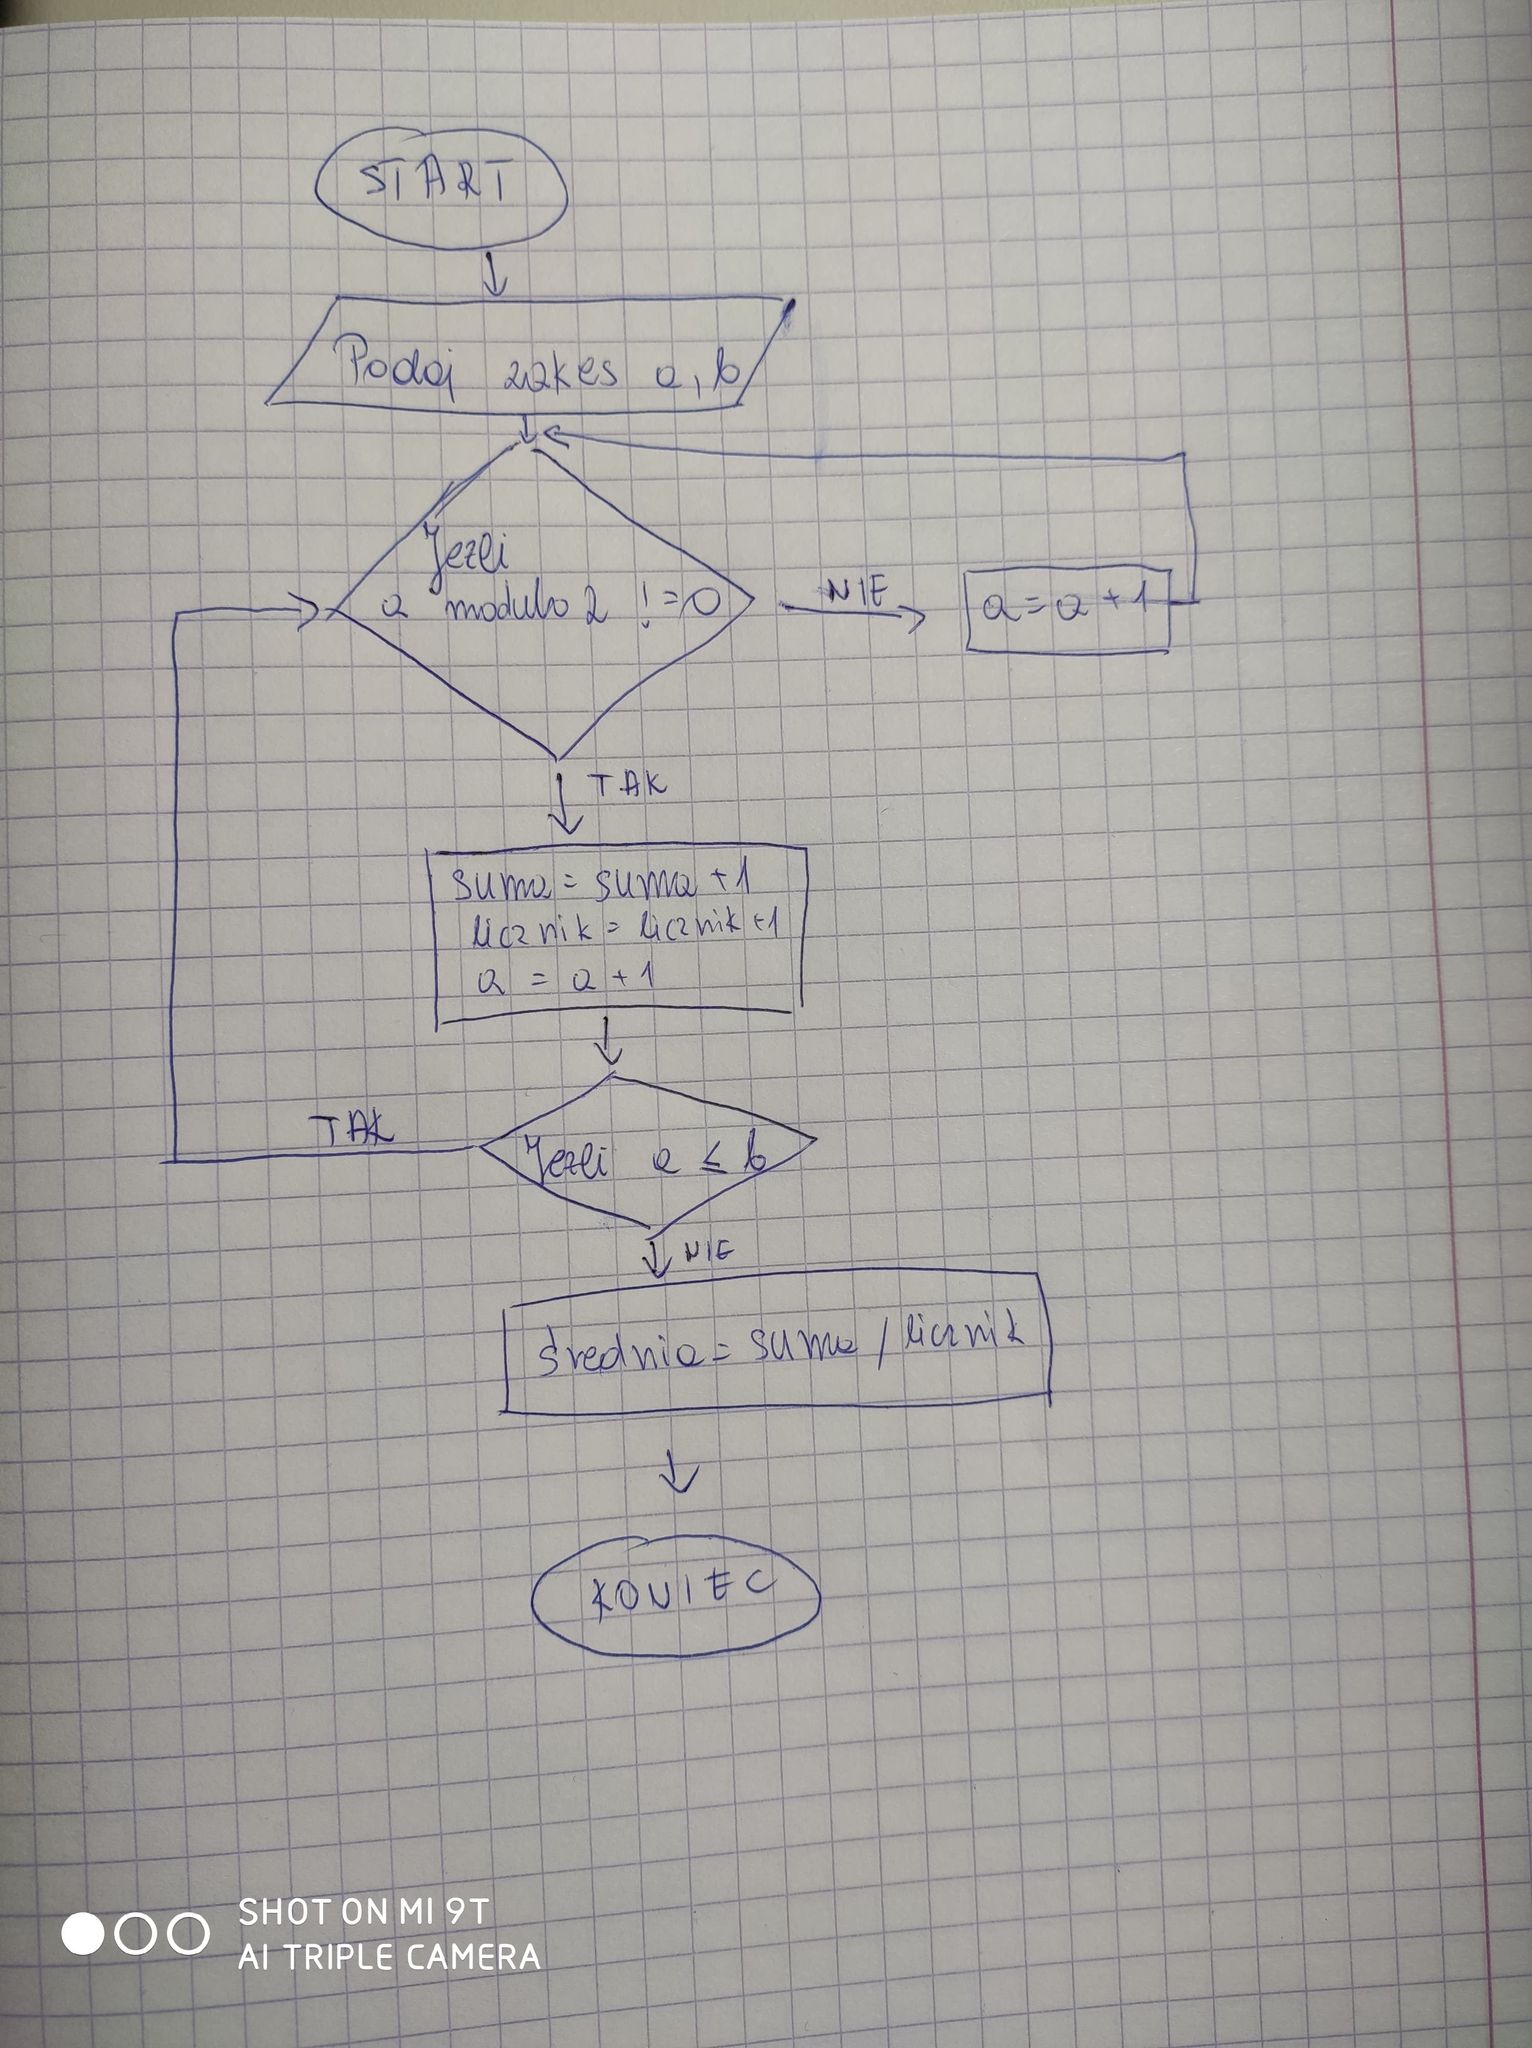 START
Podaj zakes a, b
Jezli
a modulo 2 != 0
NIE
a = a + 1
TAK
suma = suma + 1
licznik = licznik + 1
a = a + 1
TAK
Jezli a ≤ b
NIE
średnia = suma / licznik
KONIEC
SHOT ON MI 9T
AI TRIPLE CAMERA